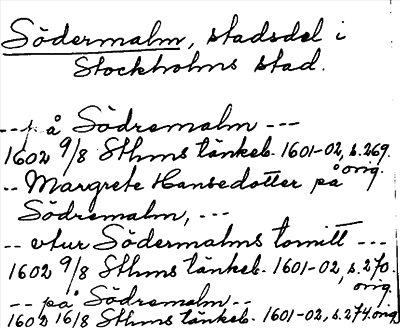 Södermalm, stadsdel i
Stockholms stad.
--på Södremalm ---
1602 9/8 Sthms tänkeb. 1601-02, s. 269.
orig.
-- Margrete Hansedotter på
Södremalm, ---
-- utur Södermalms tomitt ---
1602 9/8 Sthms tänkeb. 1601-02, s. 270.
orig.
-- på Södremalm --
1602 16/8 Sthms tänkeb. 1601-02, s. 274. orig